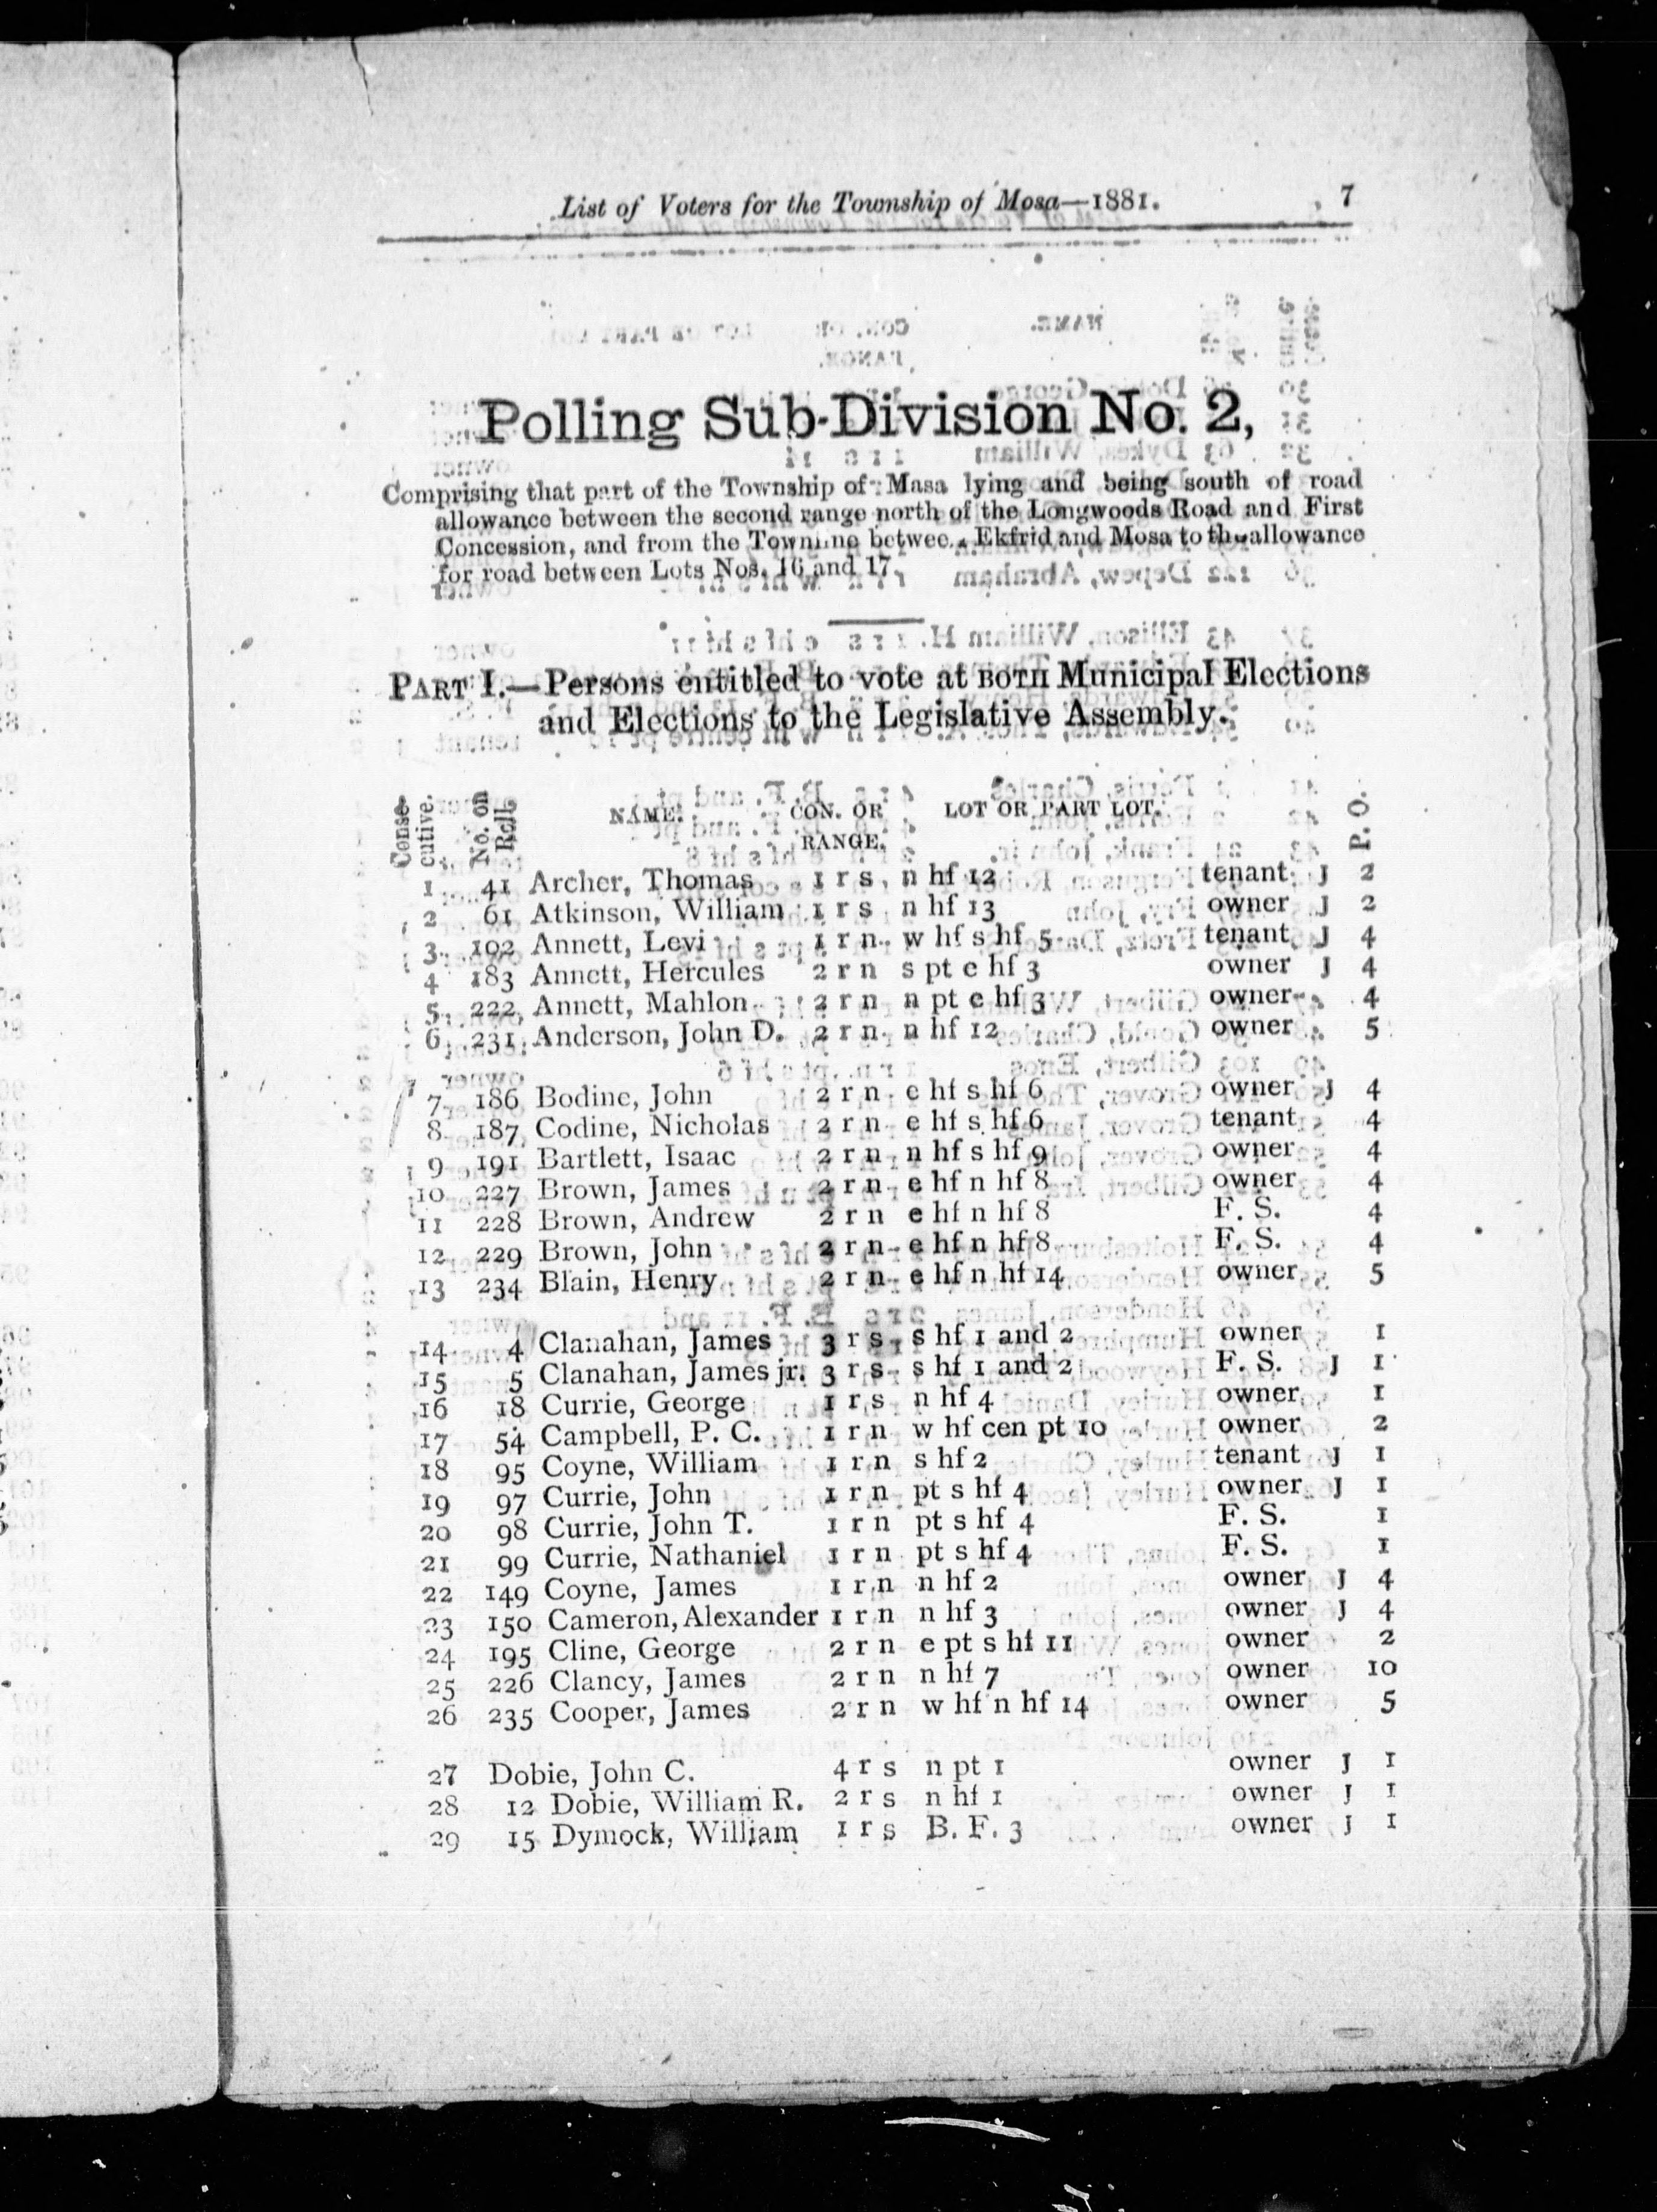 List of Voters for the Township of Mosa—1881. 7
Polling Sub-Division No. 2,
Comprising that part of the Township of Masa lying and being south of road
allowance between the second range north of the Longwoods Road and First
Concession, and from the Townline betwee.. Ekfrid and Mosa to the allowance
for road between Lots Nos. 16 and 17.
PART I.—Persons entitled to vote at BOTH Municipal Elections
and Elections to the Legislative Assembly.
Conse-cutive. No. on Roll. NAME. CON. OR RANGE. LOT OR PART LOT. P. O.
1 41 Archer, Thomas 1 r s n hf 12 tenant J 2
2 61 Atkinson, William 1 r s n hf 13 owner J 2
3 102 Annett, Levi 1 r n w hf s hf 5 tenant J 4
4 183 Annett, Hercules 2 r n s pt e hf 3 owner J 4
5 222 Annett, Mahlon 2 r n n pt e hf 3 owner 4
6 231 Anderson, John D. 2 r n n hf 12 owner 5
7 186 Bodine, John 2 r n e hf s hf 6 owner J 4
8 187 Codine, Nicholas 2 r n e hf s hf 6 tenant 4
9 191 Bartlett, Isaac 2 r n n hf s hf 9 owner 4
10 227 Brown, James 2 r n e hf n hf 8 owner 4
11 228 Brown, Andrew 2 r n e hf n hf 8 F. S. 4
12 229 Brown, John 2 r n e hf n hf 8 F. S. 4
13 234 Blain, Henry 2 r n e hf n hf 14 owner 5
14 4 Clanahan, James 3 r s s hf 1 and 2 owner 1
15 5 Clanahan, James jr. 3 r s s hf 1 and 2 F. S. J 1
16 18 Currie, George 1 r s n hf 4 owner 1
17 54 Campbell, P. C. 1 r n w hf cen pt 10 owner 2
18 95 Coyne, William 1 r n s hf 2 tenant J 1
19 97 Currie, John 1 r n pt s hf 4 owner J 1
20 98 Currie, John T. 1 r n pt s hf 4 F. S. 1
21 99 Currie, Nathaniel 1 r n pt s hf 4 F. S. 1
22 149 Coyne, James 1 r n n hf 2 owner J 4
23 150 Cameron, Alexander 1 r n n hf 3 owner J 4
24 195 Cline, George 2 r n e pt s hf 11 owner 2
25 226 Clancy, James 2 r n n hf 7 owner 10
26 235 Cooper, James 2 r n w hf n hf 14 owner 5
27 Dobie, John C. 4 r s n pt 1 owner J 1
28 12 Dobie, William R. 2 r s n hf 1 owner J 1
29 15 Dymock, William 1 r s B. F. 3 owner J 1